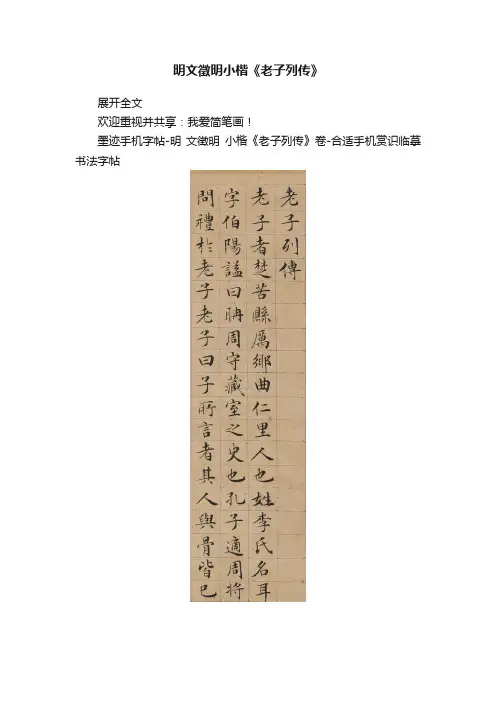 明文徵明小楷《老子列传》
展开全文
欢迎重视并共享：我爱简笔画！
墨迹手机字帖-明 文徵明 小楷《老子列传》卷-合适手机赏识临摹
书法字帖
老子列傳
老子者楚苦縣厲鄉曲仁里人也姓李氏名耳
字伯陽謚曰聃周守藏室之史也孔子適周將
問禮於老子老子曰子所言者其人與骨皆已